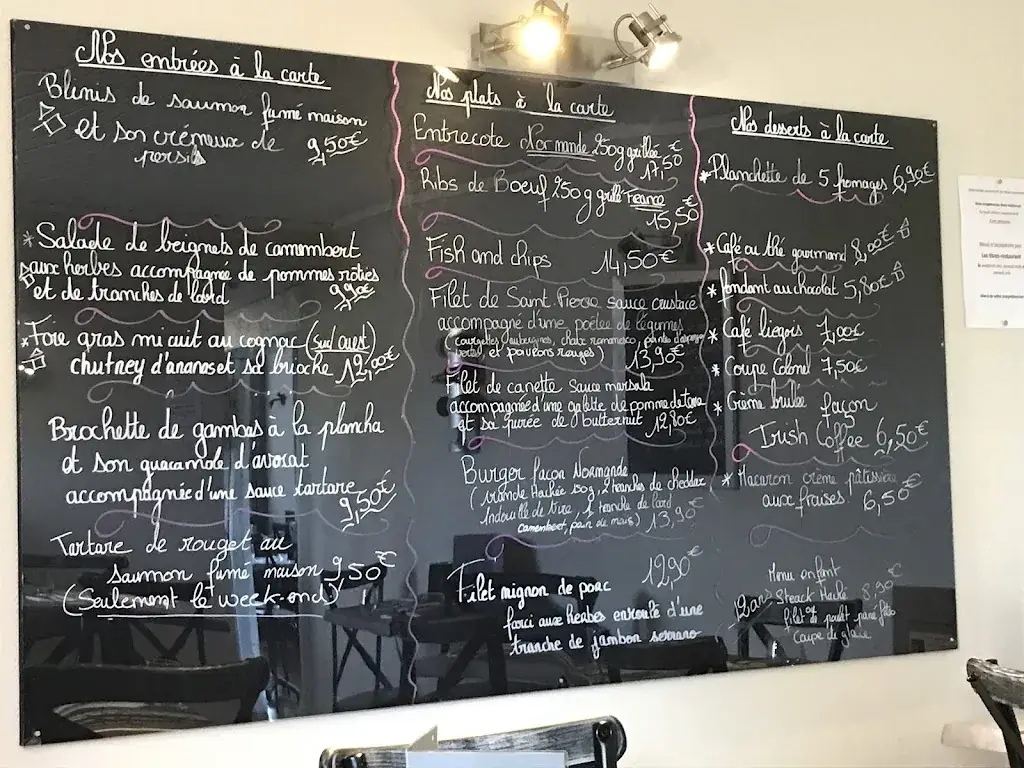 Nos entrées à la carte
Blinis de saumon fumé maison
et son crémeux de
persil
9,50€
* Salade de beignets de camembert
aux herbes accompagnée de pommes rôties
et de tranches de lard
9,90€
* Foie gras mi cuit au cognac (Sud Ouest)
chutney d'ananas et sa brioche 12,00€
Brochette de gambas à la plancha
et son guacamole d'avocat
accompagnée d'une sauce tartare
9,50€
Tartare de rouget au
saumon fumé maison 9,50€
(Seulement le week-end)
Nos plats à la carte
Entrecote Normande 250g grillée
17,50€
Ribs de Boeuf 250g grillé France
15,50€
Fish and chips 14,50€
Filet de Saint Pierre sauce crustacé
accompagné d'une poêlée de légumes
(courgettes, aubergines, choux romanesco, pointes d'asperges
vertes, et poivrons rouges) 13,90€
Filet de canette sauce marsala
accompagnée d'une galette de pomme de terre
et sa purée de butternut 12,80€
Burger façon Normande
(viande Hachée 150g, 2 tranches de cheddar
Andouille de Vire, 1 tranche de lard
camembert, pain de maïs) 13,90€
Filet mignon de porc 12,90€
farci aux herbes enroulé d'une
tranche de jambon serrano
Nos desserts à la carte
* Planchette de 5 fromages 6,90€
* Café ou thé gourmand 8,00€
* fondant au chocolat 5,80€
* Café liegois 7,00€
* Coupe Colonel 7,50€
* Crème brulée façon
Irish Coffee 6,50€
* Macaron crème pâtissière
aux fraises 6,50€
Menu enfant
Steack Haché 8,90€
filet de poulet pané frites
Coupe de glace